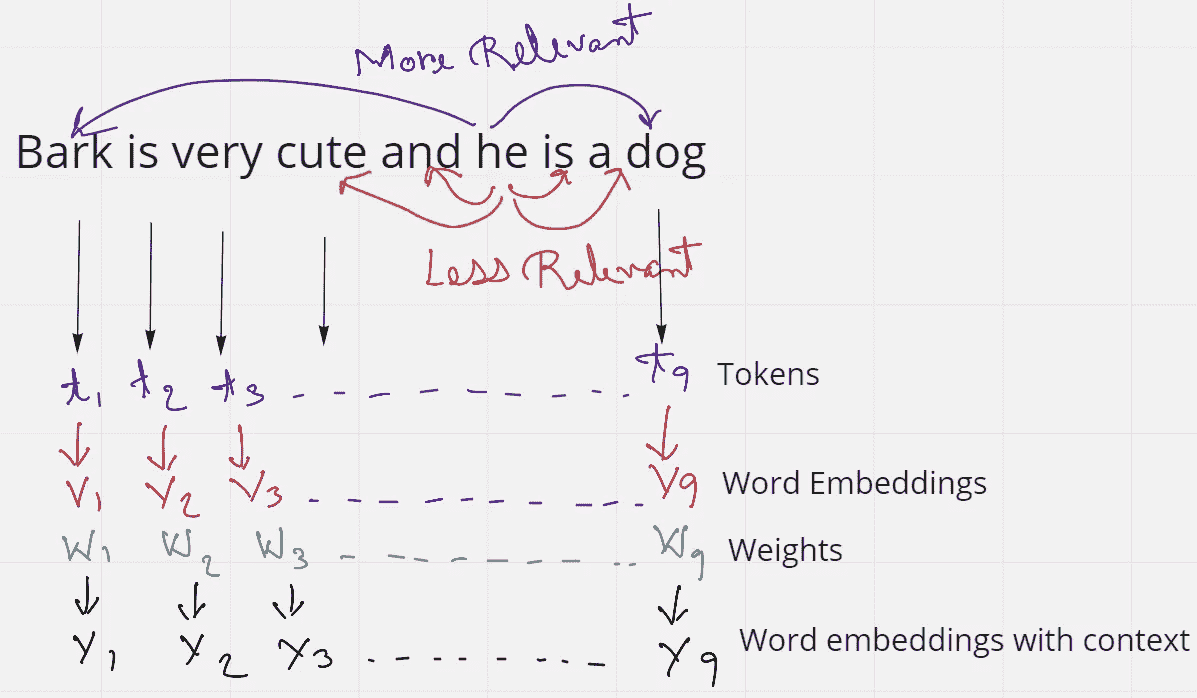 More Relevant
Bark is very cute and he is a dog
Less Relevant
t1 t2 t3 t9 Tokens
V1 V2 V3 V9 Word Embeddings
W1 W2 W3 W9 Weights
Y1 Y2 Y3 Y9 Word embeddings with context